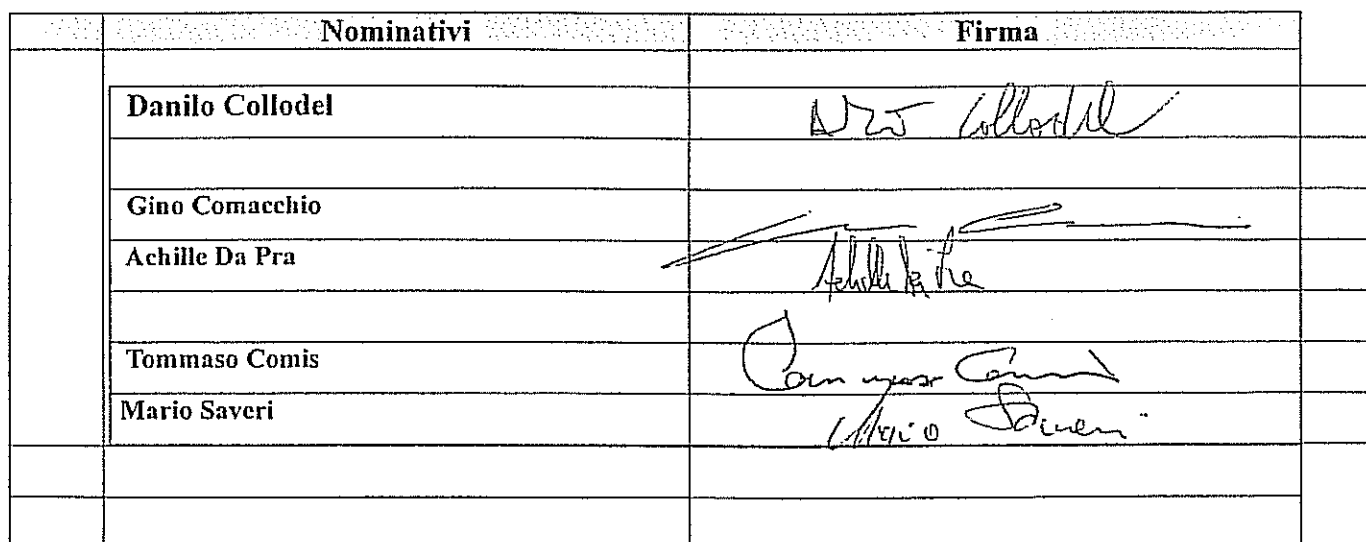 Nominativi Firma
Danilo Collodel Collodel
Gino Comacchio
Achille Da Pra Achille Da Pra
Tommaso Comis Tommaso Comis
Mario Saveri Mario Saveri